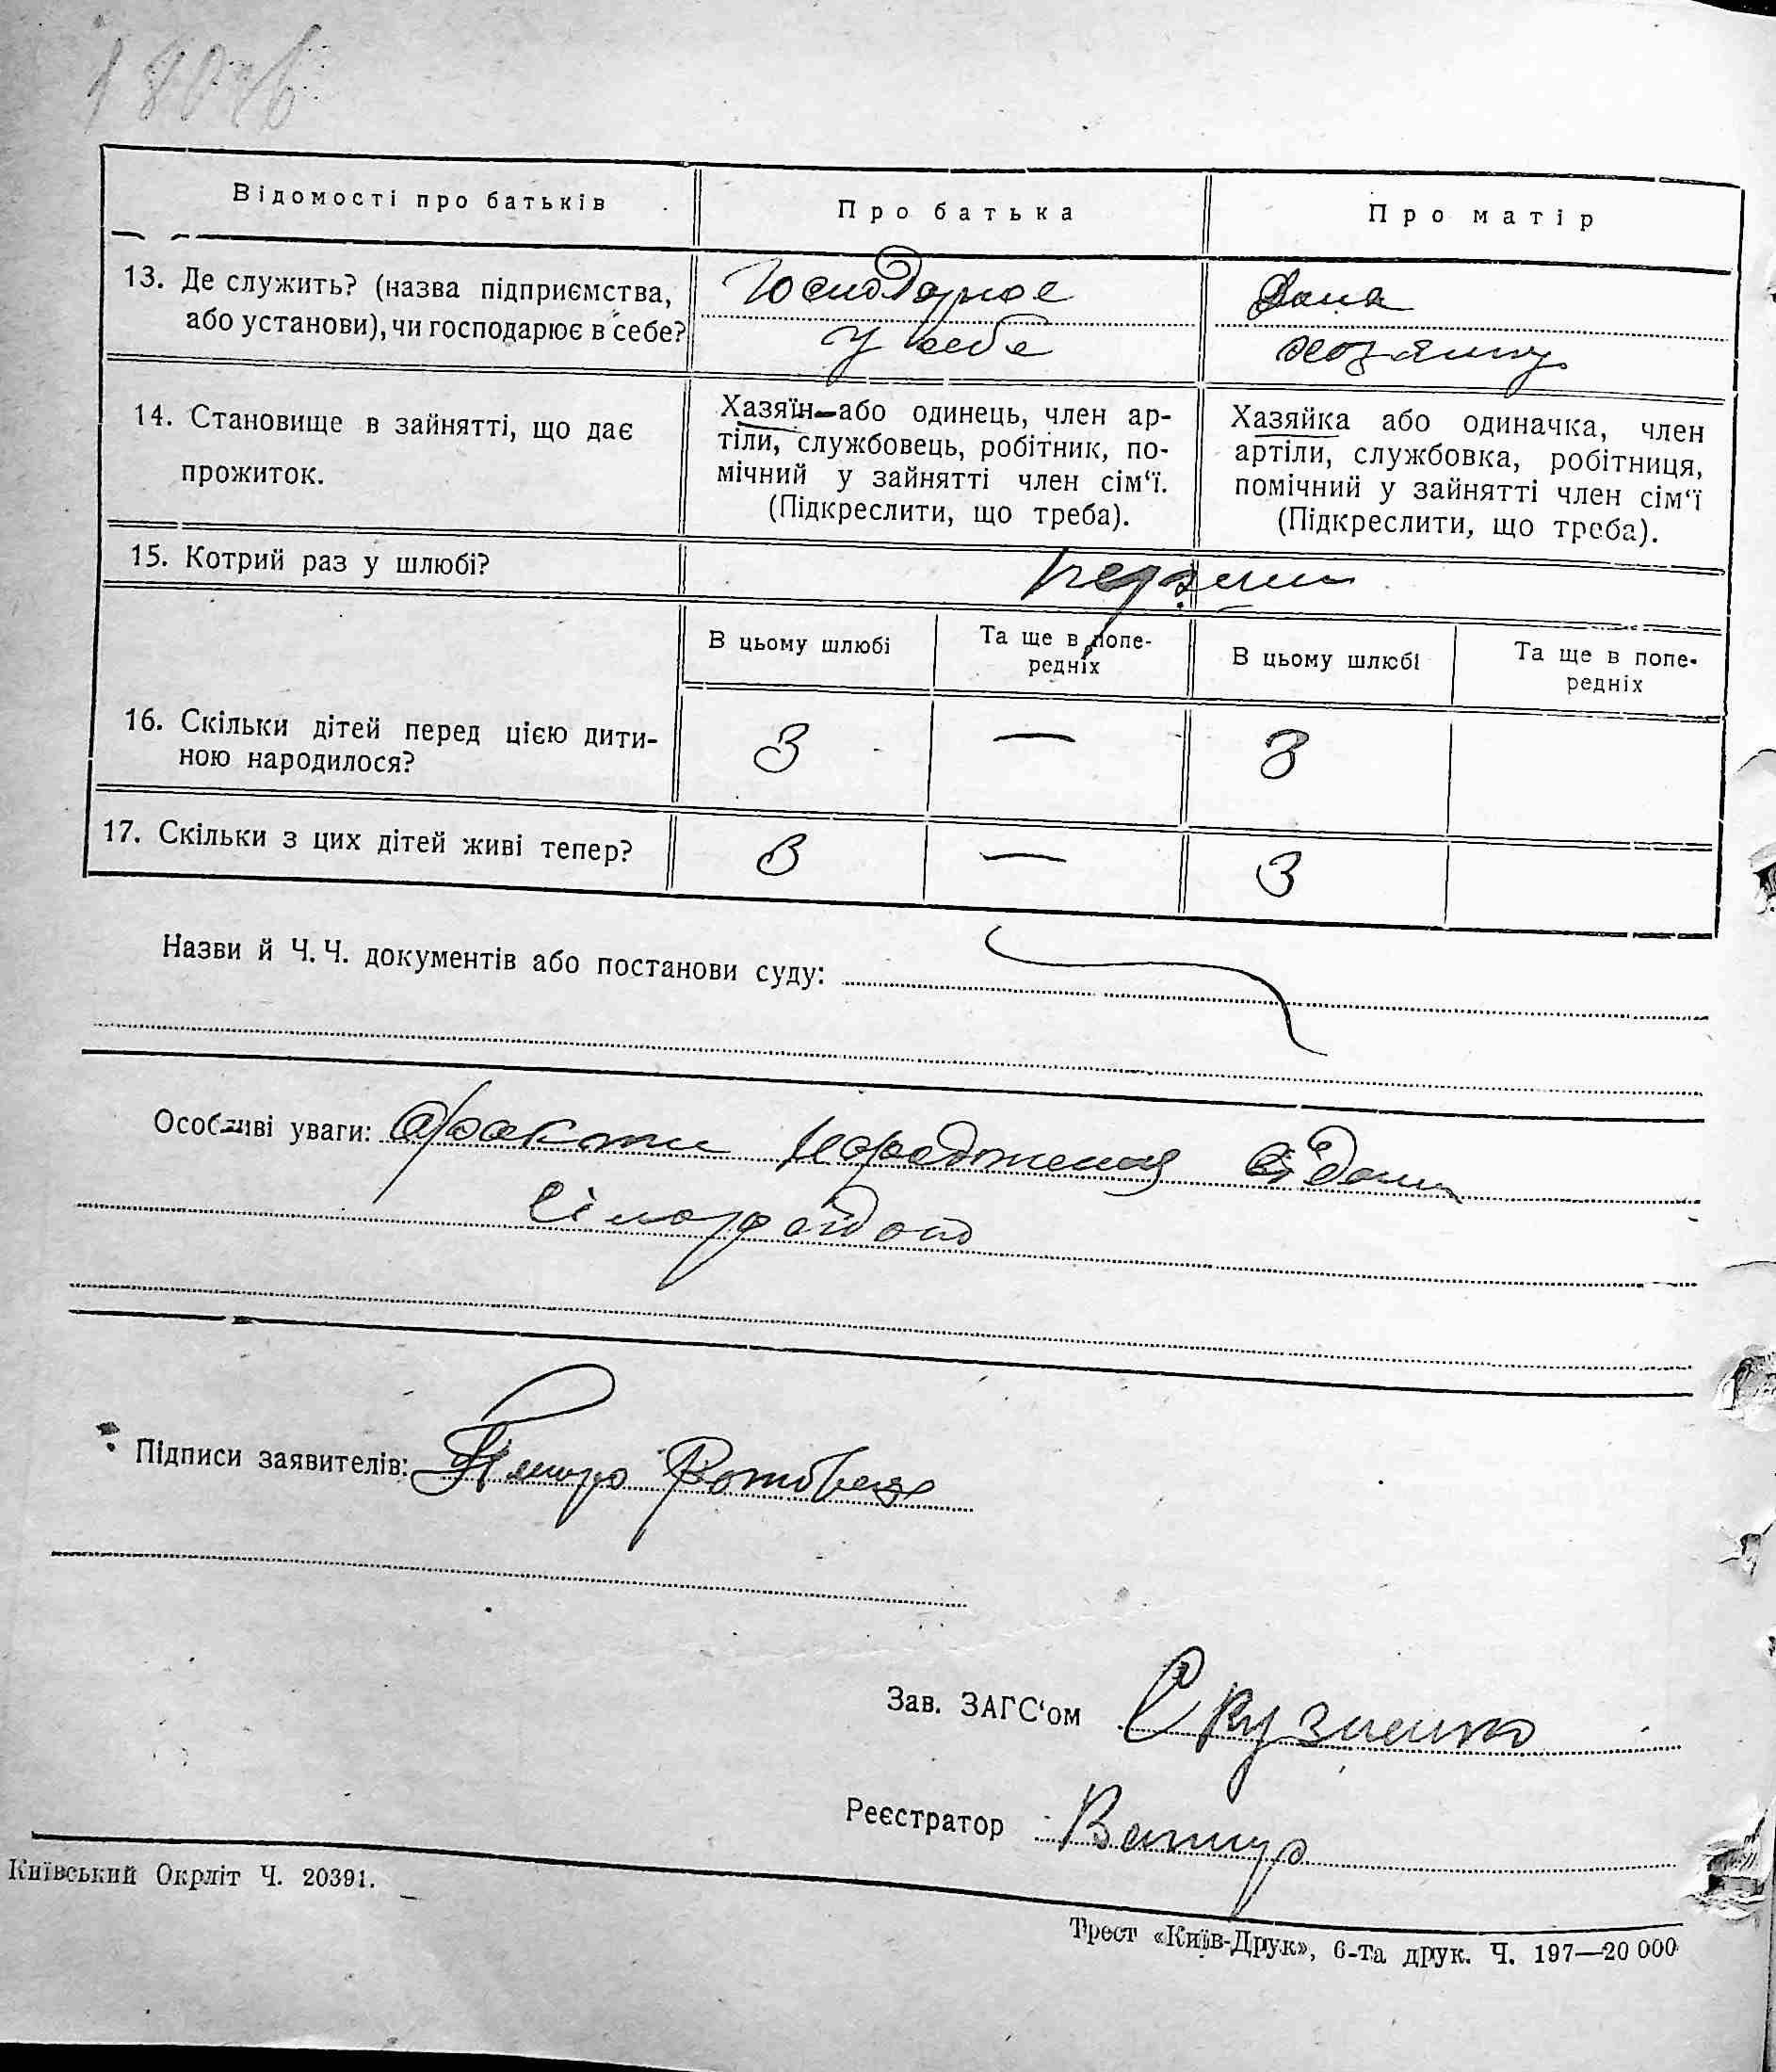 Відомості про батьків
Про батька
Про матір
13. Де служить? (назва підприємства,
або установи), чи господарює в себе?
Господарює
у себе
Дома
хозяину
14. Становище в зайнятті, що дає
прожиток.
Хазяїн або одинець, член ар-
тіли, службовець, робітник, по-
мічний у зайнятті член сім‘ї.
(Підкреслити, що треба).
Хазяйка або одиначка, член
артіли, службовка, робітниця,
помічний у зайнятті член сім‘ї
(Підкреслити, що треба).
15. Котрий раз у шлюбі?
первий
В цьому шлюбі
Та ще в попе-
редніх
В цьому шлюбі
Та ще в попе-
редніх
16. Скільки дітей перед цією дити-
ною народилося?
3 — 3
17. Скільки з цих дітей живі тепер?
3 — 3
Назви й Ч. Ч. документів або постанови суду:
Особливі уваги: факти народження
Підписи заявителів:
Зав. ЗАГС‘ом
Реєстратор
Київський Окрліт Ч. 20391.
Трест «Київ-Друк», 6-та друк. Ч. 197—20 000